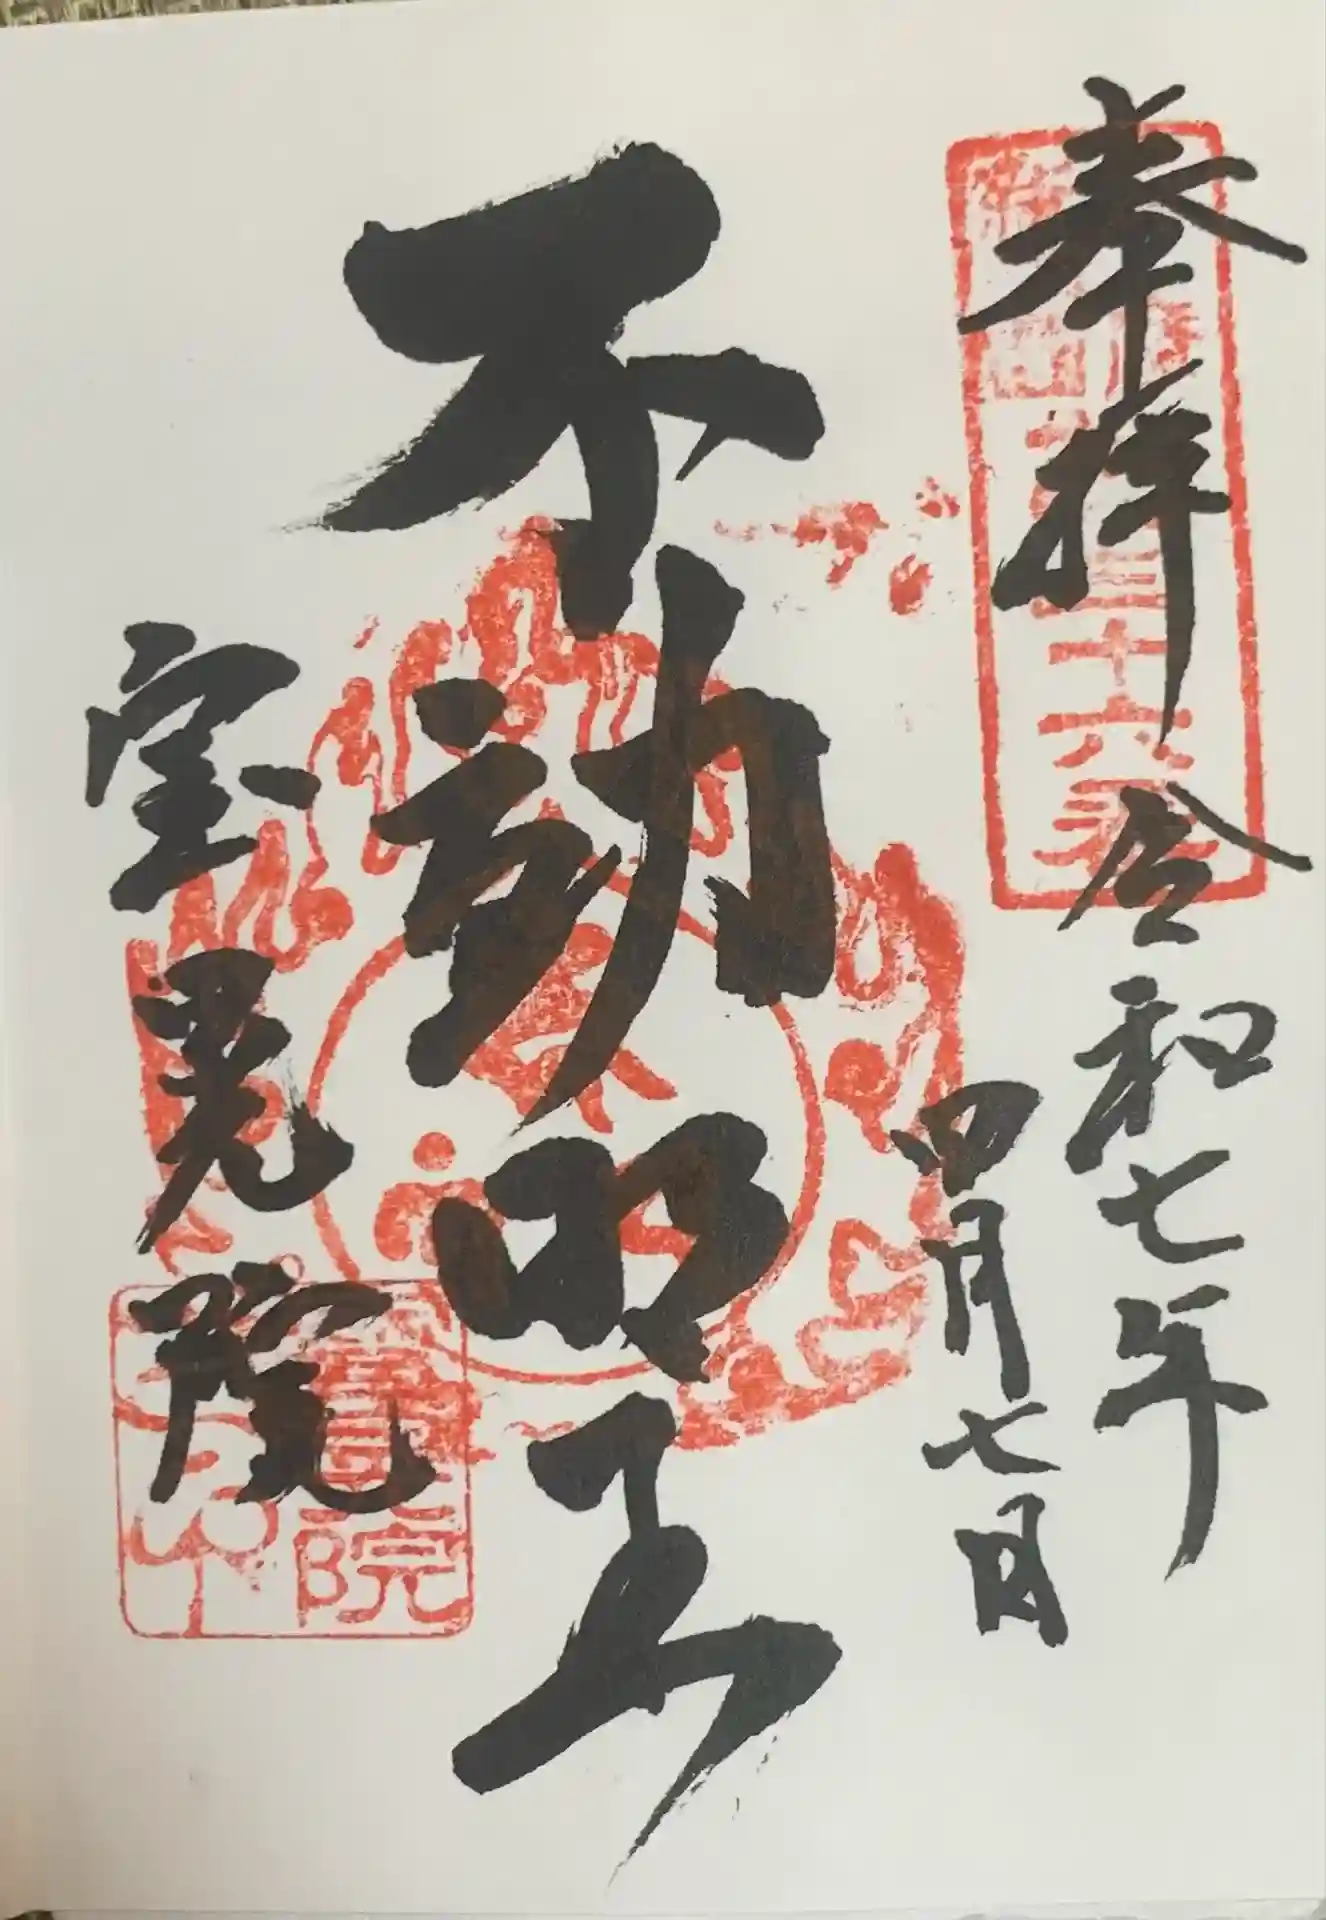 奉拝
令和七年
四月七日
三十六番
不動明王
宝晃院
院